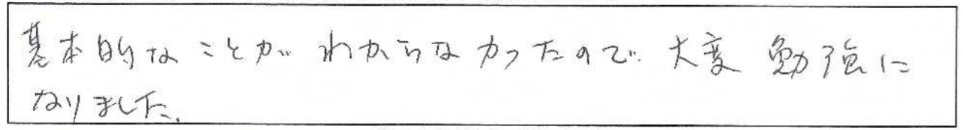 基本的なことがわからなかったので.大変勉強に
なりました.